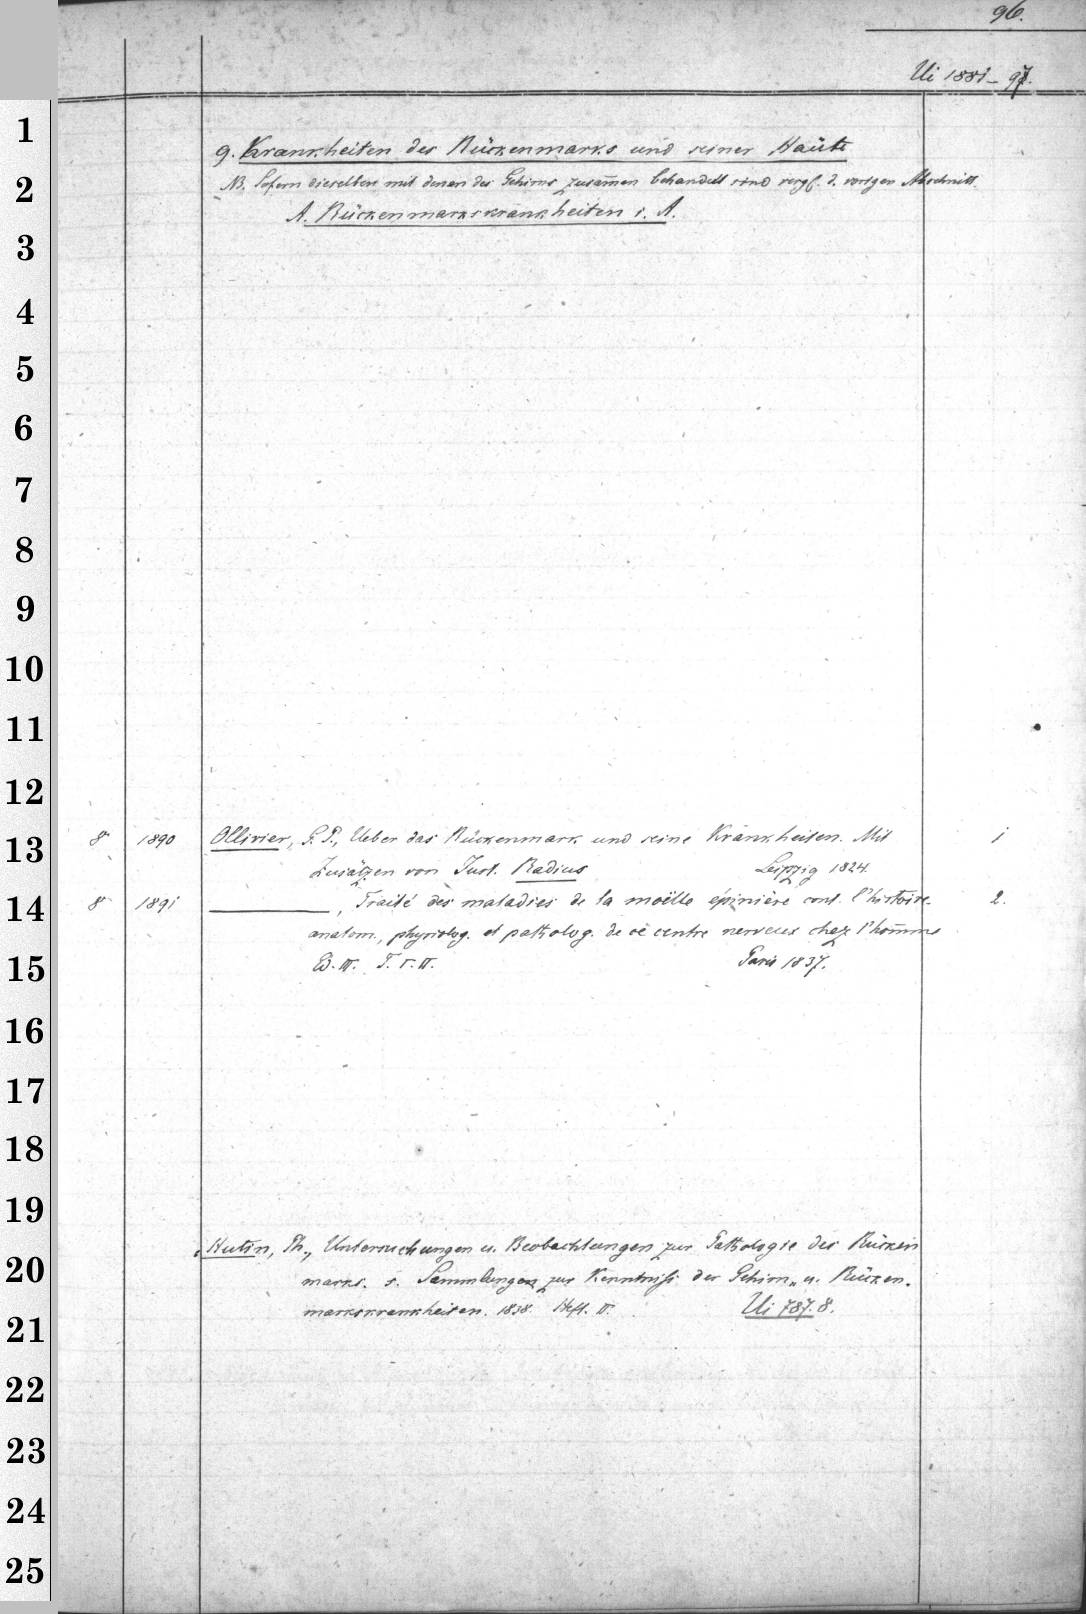 96.
Ui 1881-97.
1
g. Krankheiten des Rückenmarks und seiner Häute
2
NB. Sofern dieselben mit denen des Gehirns zusam̄en behandelt sind vergl. d. vorigen Abschnitt.
A. Rückenmarkskrankheiten i. A.
3
4
5
6
7
8
9
10
11
12
13
8° 1890 Ollivier, G. P., Ueber das Rückenmark und seine Krankheiten. Mit 1
Zusätzen von Just. Radius Leipzig 1824.
14
8° 1891 ———, Traité des maladies de la moëlle épinière cont. l'histoire 2.
anatom., physiolog. et patholog. de ce centre nerveux chez l'hom̄me
15
Ed. III. T. I. II. Paris 1837.
16
17
18
19
Hutin, Ph., Untersuchungen u. Beobachtungen zur Pathologie des Rücken
20
marks. s. Sammlungen zur Kenntniss der Gehirn- u. Rücken-
markskrankheiten. 1838. Heft. II. Ui 787. 8.
21
22
23
24
25